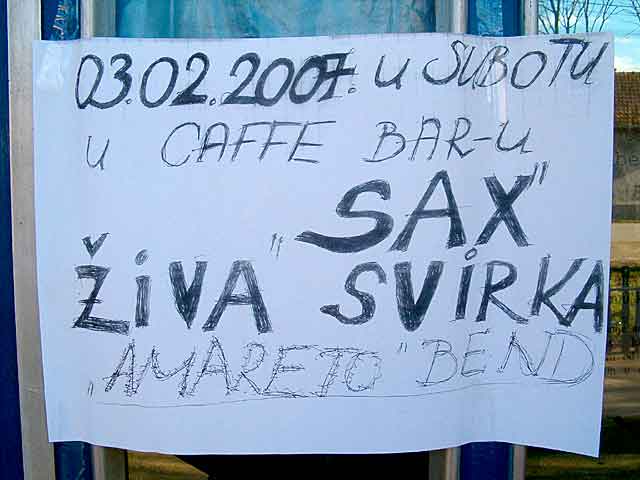 03.02.2007. u SUBOTU
u CAFFE BAR-u
„SAX”
ŽiVA SVIRKA
„AMARETO” BEND